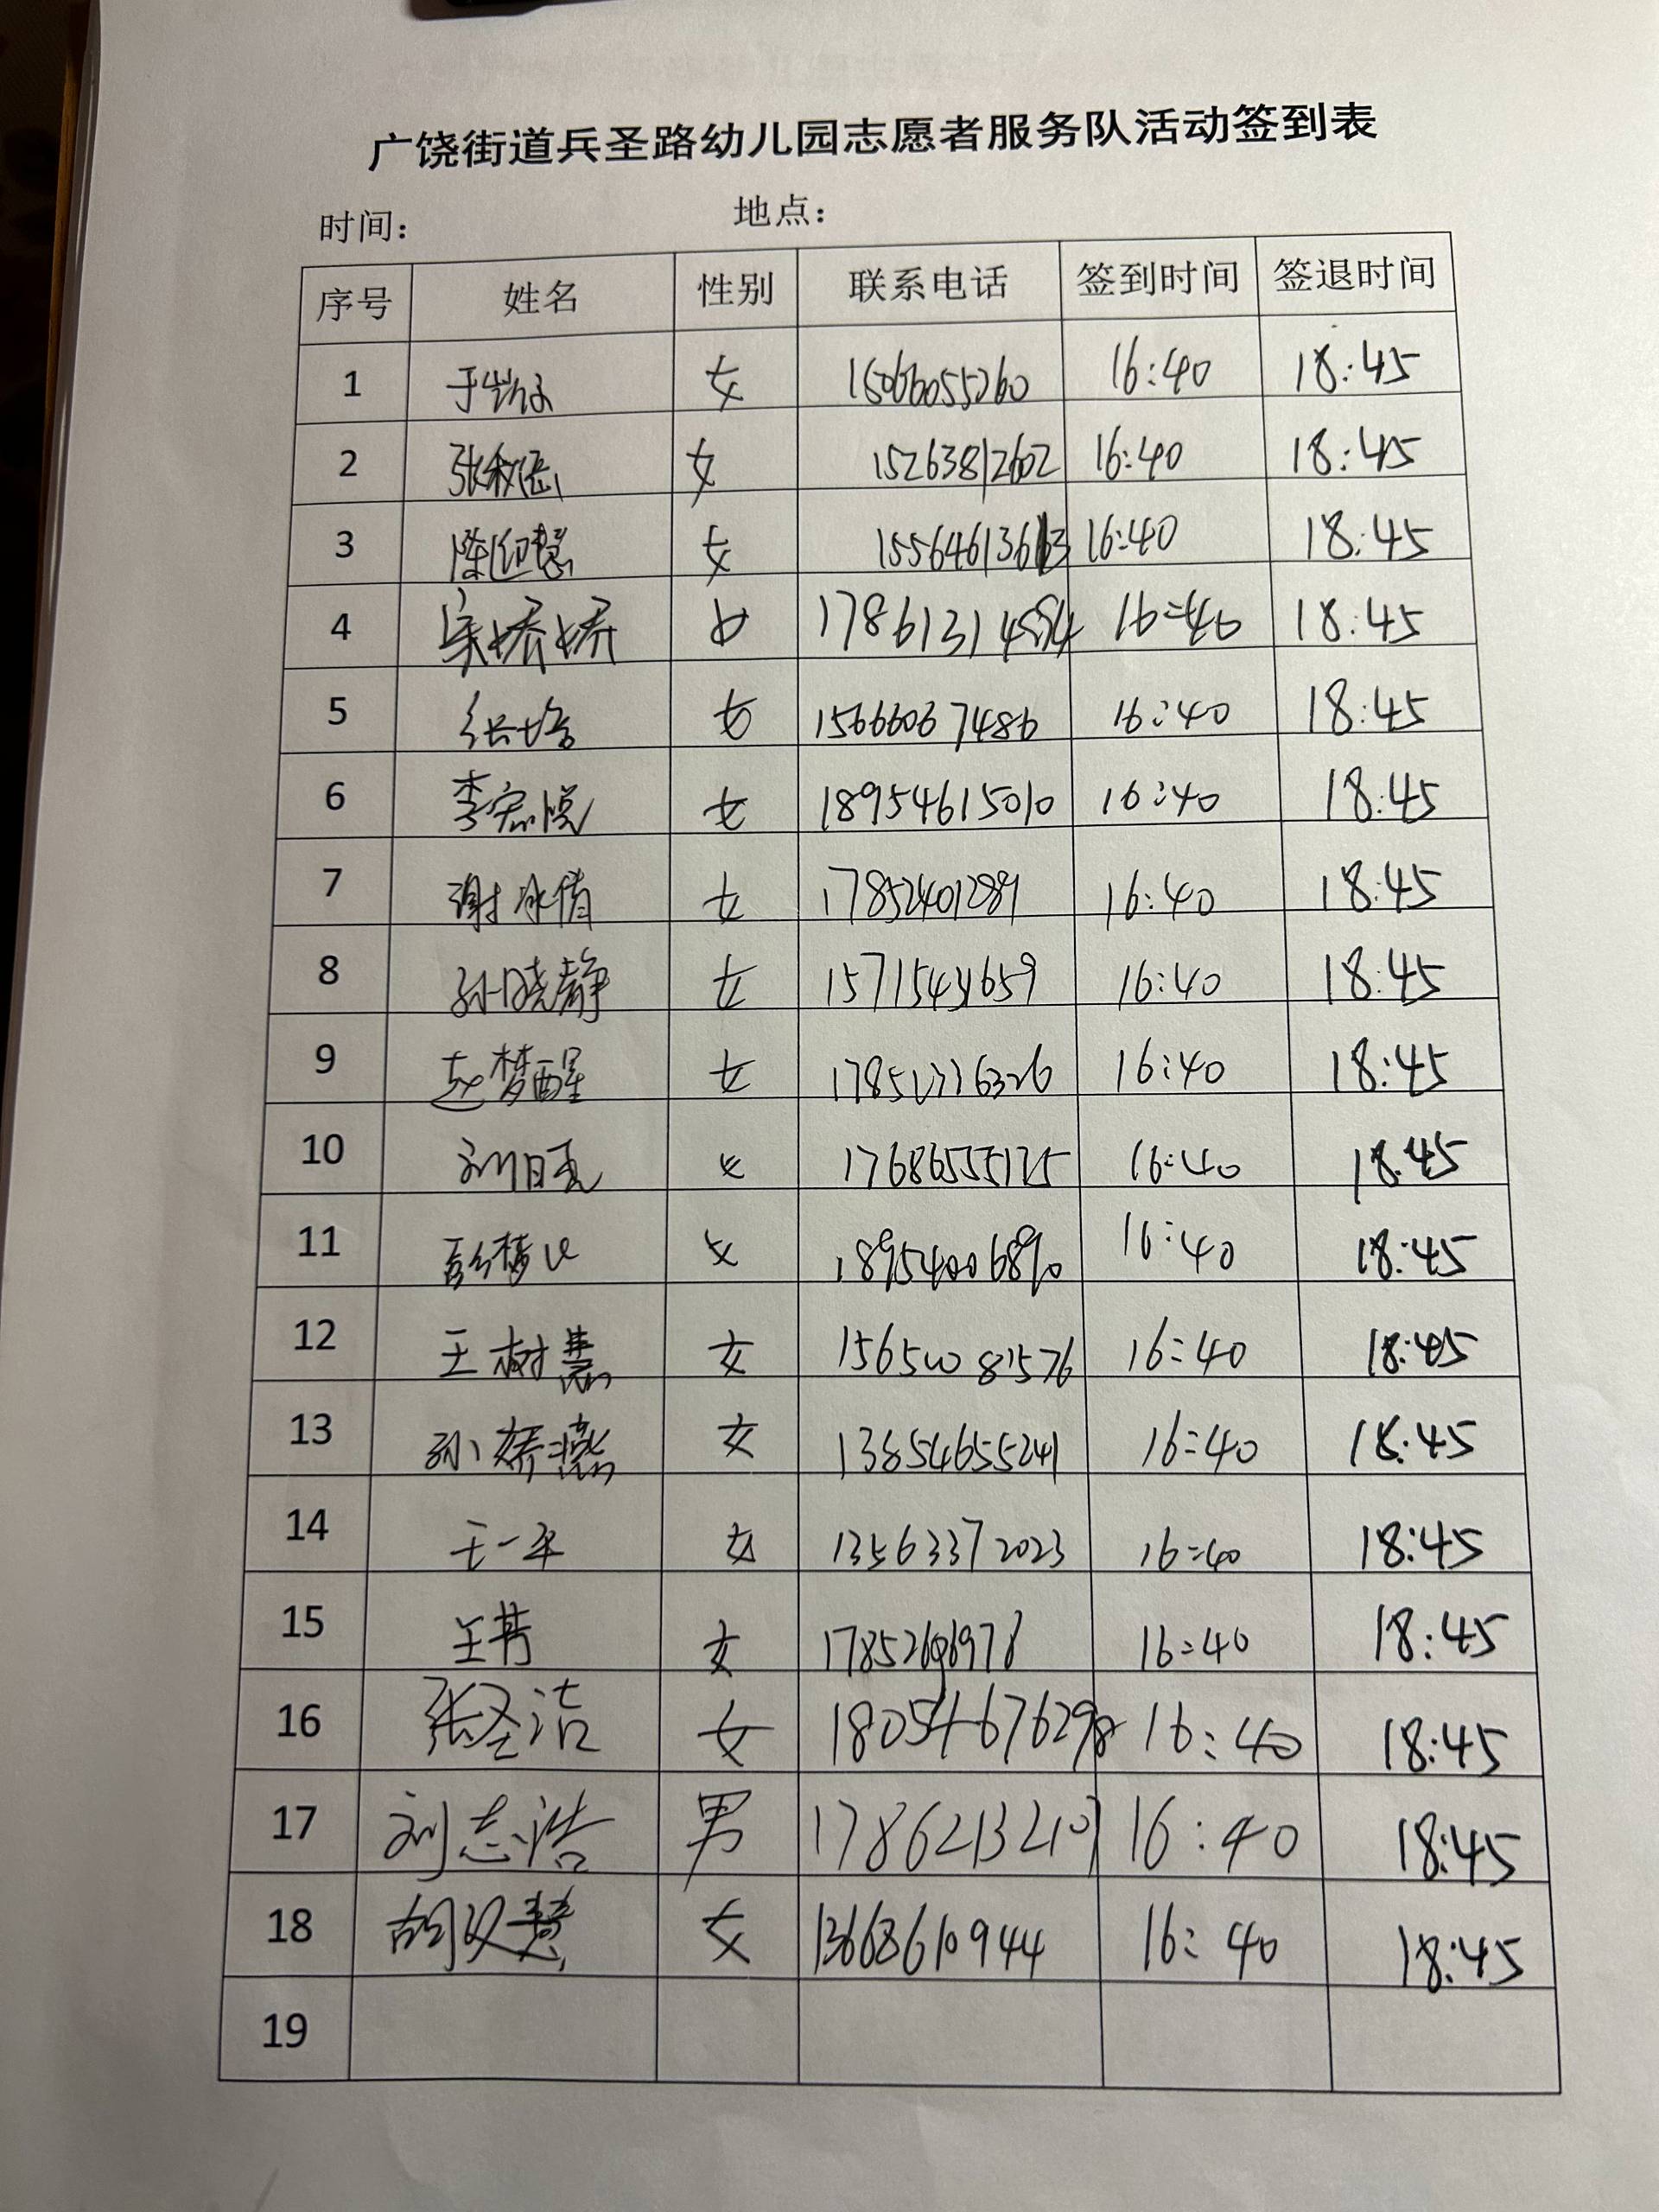 广饶街道兵圣路幼儿园志愿者服务队活动签到表
时间： 地点：
序号 姓名 性别 联系电话 签到时间 签退时间
1 女 15066055260 16:40 18:45
2 女 15263812602 16:40 18:45
3 陈迎慧 女 16:40 18:45
4 宋娇娇 女 16:40 18:45
5 女 15666067486 16:40 18:45
6 李宏悦 女 18954615010 16:40 18:45
7 谢冰倩 女 17852401289 16:40 18:45
8 孙晓静 女 16:40 18:45
9 赵梦醒 女 16:40 18:45
10 女 17686555125 16:40 18:45
11 女 18954006890 16:40 18:45
12 王树慧 女 15650081576 16:40 18:45
13 孙娇燕 女 13854655241 16:40 18:45
14 王一平 女 13563372023 16:40 18:45
15 女 16:40 18:45
16 张圣洁 女 18054676298 16:40 18:45
17 刘志浩 男 17862132107 16:40 18:45
18 胡汉慧 女 13668610944 16:40 18:45
19